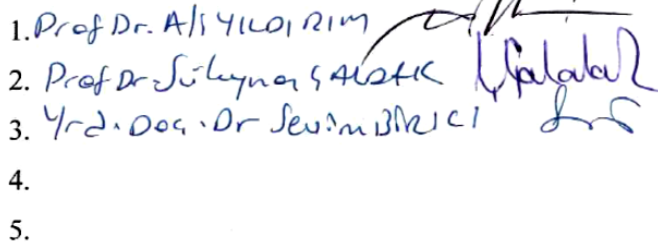 1. Prof Dr. Ali YILDIRIM
2. Prof Dr Süleyman ÇALDAK
3. Yrd. Doç. Dr Sevim BİRİCİ
4.
5.